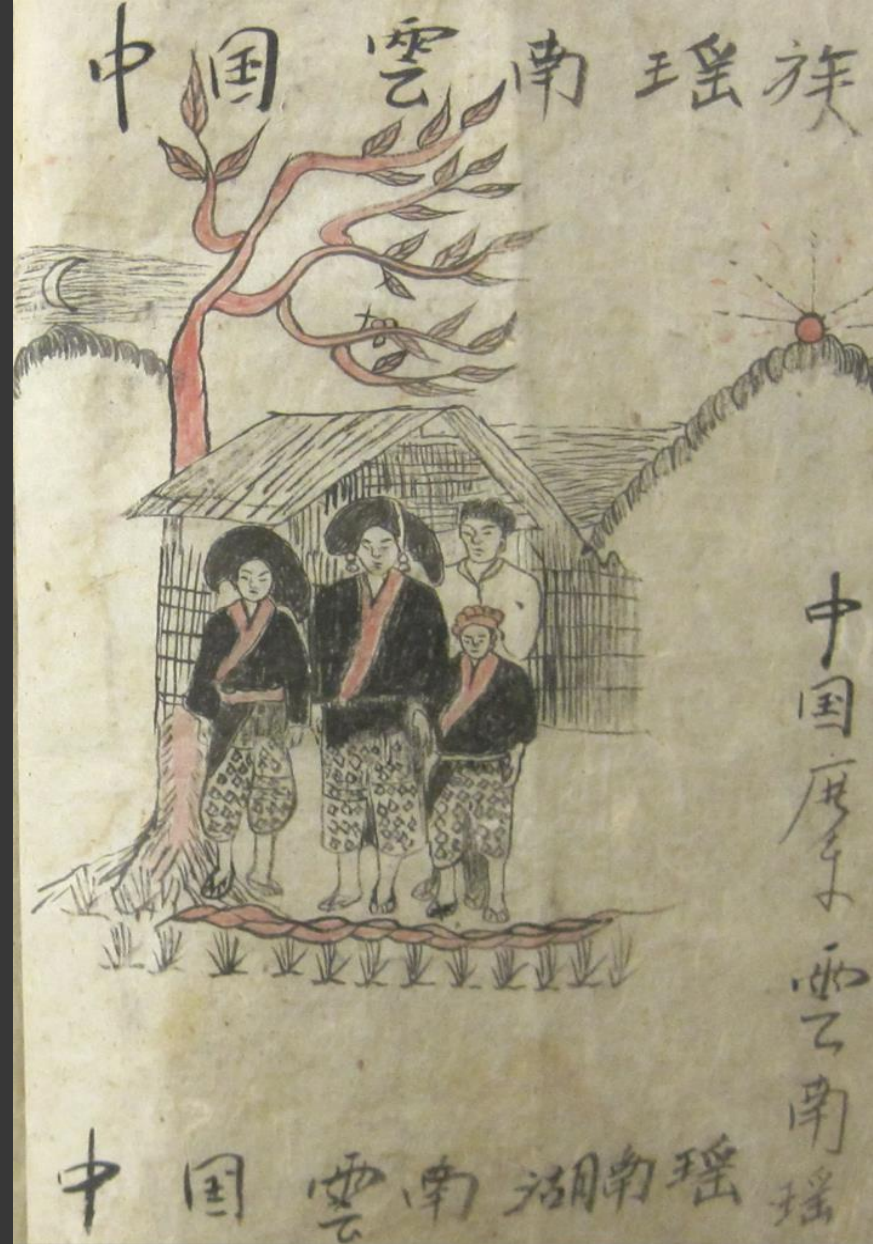 中国雲南瑶族
中国东雲南瑶
中国雲南湖南瑶